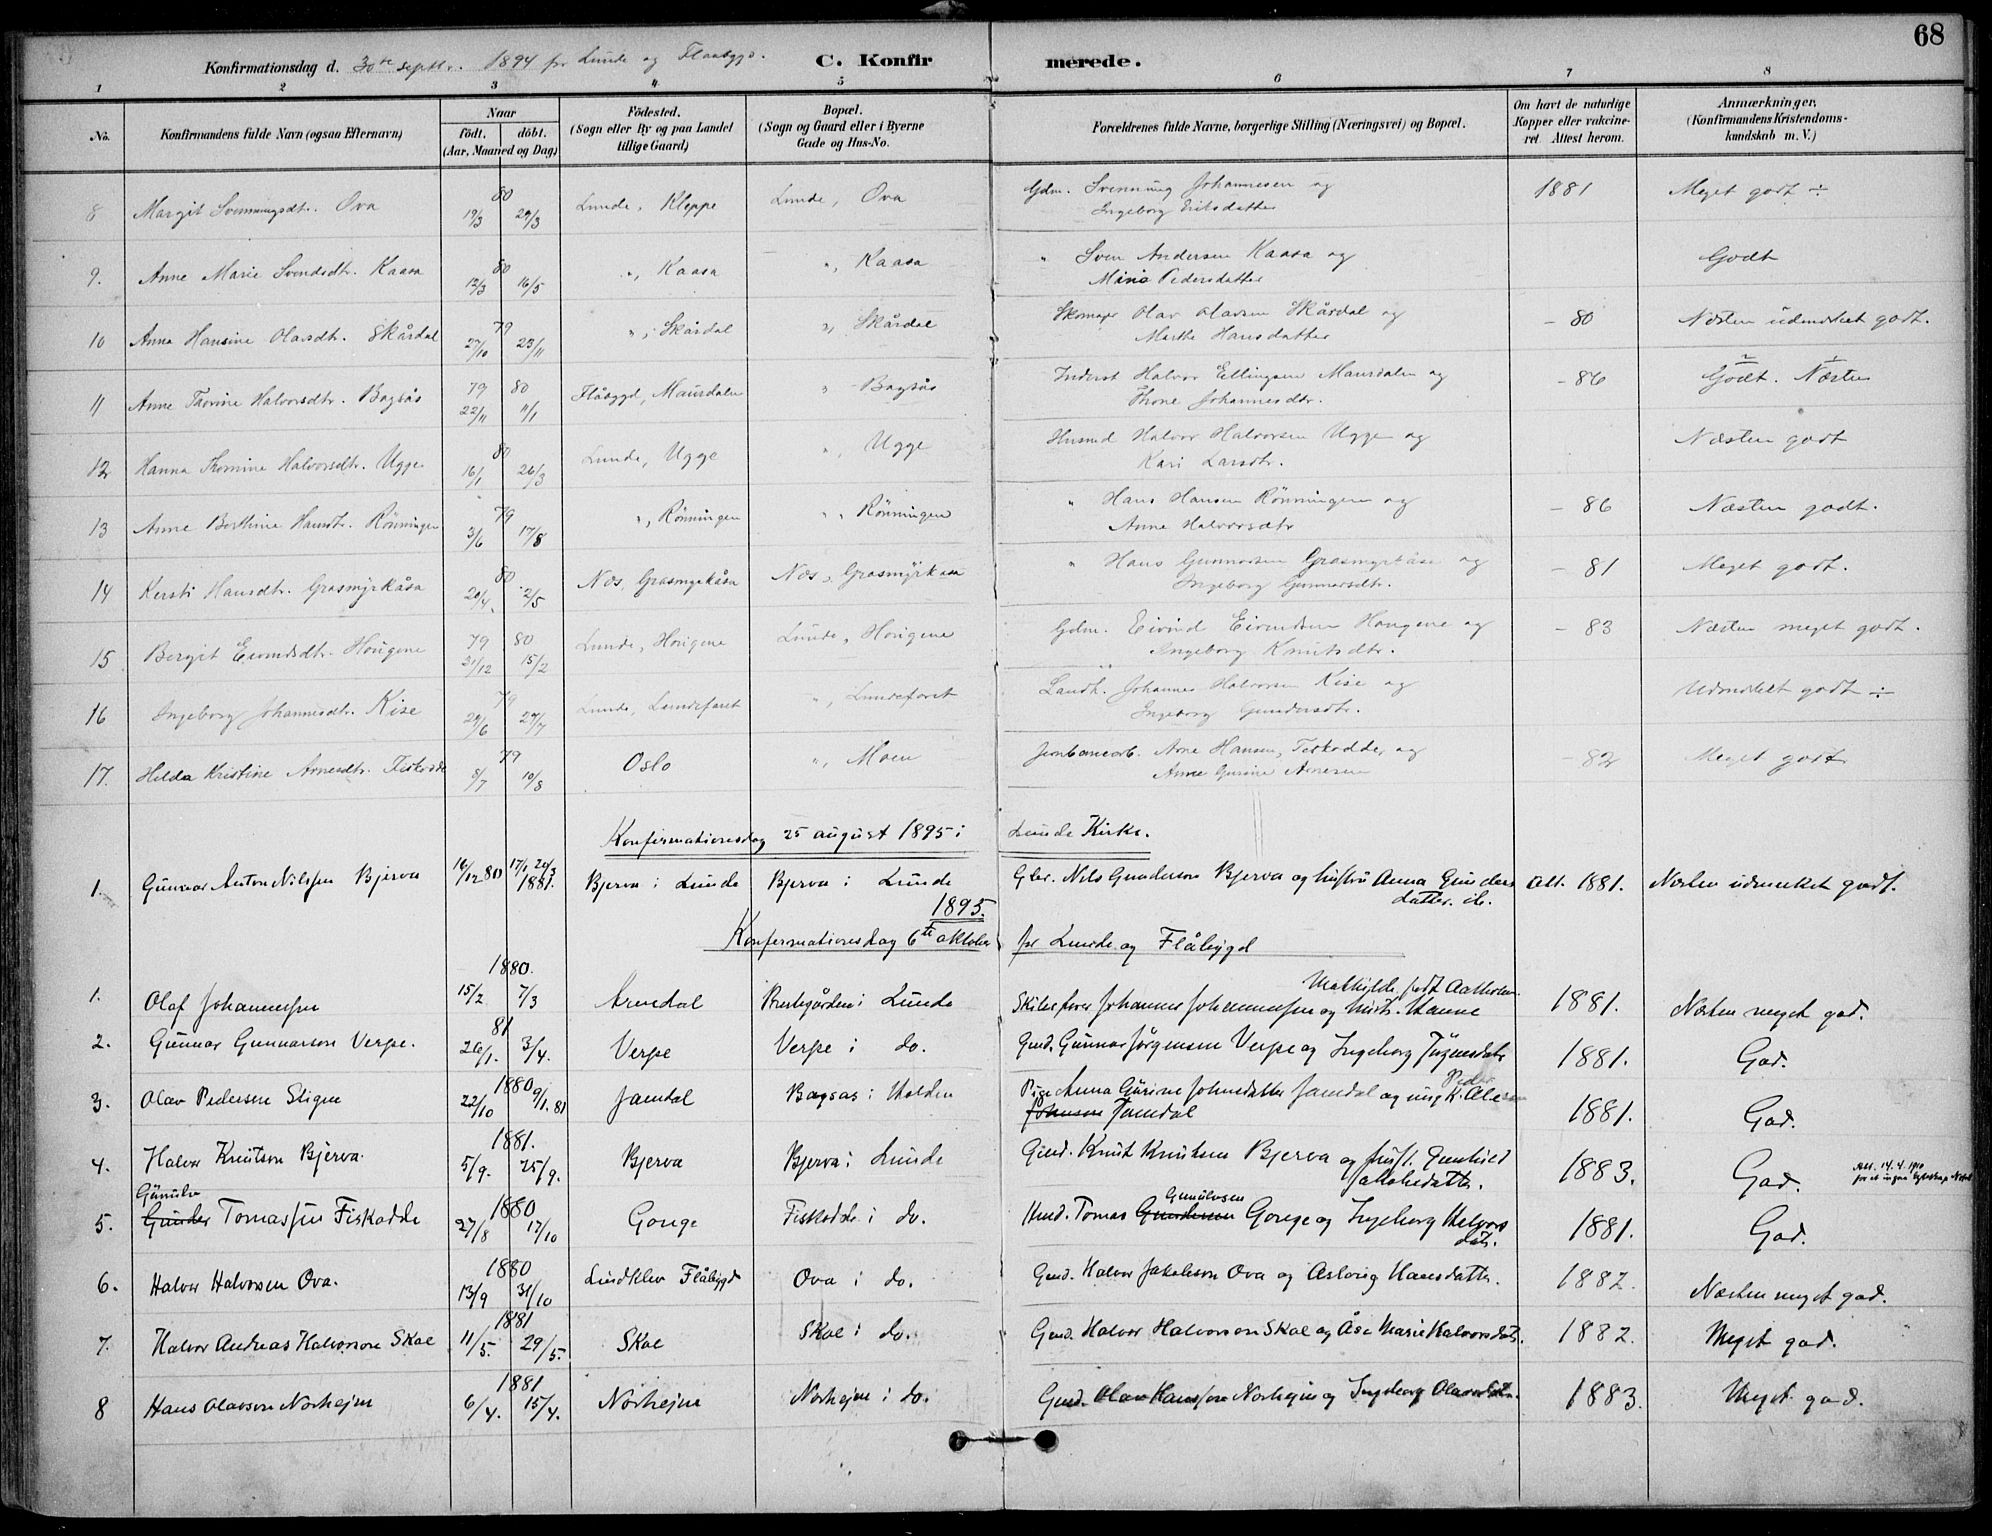 68
Konfirmationsdag d. 30te septbr. 1894 for Lunde og Flaabygd. C. Konfirmerede.
1 2 3 4 5 6 7 8
No. Konfirmandens fulde Navn (ogsaa Efternavn) Naar födt. döbt. (Aar, Maaned og Dag) Födested. (Sogn eller By og paa Landet tillige Gaard) Bopæl. (Sogn og Gaard eller i Byerne Gade og Hus-No. Forældrenes fulde Navne, borgerlige Stilling (Næringsvei) og Bopæl. Om havt de naturlige Kopper eller vakcineret. Attest herom. Anmærkninger. (Konfirmandens Kristendomskundskab m. V.)
8 Margit Svenningsdt. Ova 80 19/3 29/3 Lunde, Kleppe Lunde, Ova Gdm. Svenning Johannesen og Ingeborg Eriksdatter 1881 Meget godt ÷
9. Anne Marie Svendsdtr. Kaasa 80 12/3 16/5 ", Kaasa ", Kaasa " Sven Andersen Kaasa og Maria Pedersdatter Godt
10 Anna Hansine Olavsdtr. Skårdal 79 27/10 23/11 ", Skårdal ", Skårdal Skomager Olav Olavsen Skårdal og Marthe Hansdatter - 80 Næsten udmerket godt.
11 Anne Thorine Halvorsdtr. Bagsås 79 80 22/11 11/1 Flåbygd, Maurdalen " Bagsås Inderst Halvor Ellingsen Maurdalen og Thone Johannesdtr. - 86 Godt. Næsten
12 Hanna Thomine Halvorsdtr. Ugge 80 16/1 26/3 Lunde, Ugge ", Ugge Husmd Halvor Halvorsen Ugge og Kari Larsdtr. Næsten godt
13 Anne Berthine Hansdtr. Rönningen 79 3/6 17/8 ", Rönningen ", Rönningen " Hans Hansen Rönningen og Anne Halvorsdtr - 86 Næsten godt.
14 Kersti Hansdtr. Grasmyrkåsa 80 20/4 2/5 Næs, Grasmyrkåsa Næs, Grasmyrkåsa " Hans Gunnarsen Grasmyrkåsa og Ingeborg Gunnarsdtr. - 81 Meget godt.
15 Bergit Eivindsdtr. Hougene 79 80 21/12 15/2 Lunde, Hougene Lunde, Hougene Gdm. Eivind Eivindsen Haugene og Ingeborg Knutsdtr. - 83 Næsten meget godt.
16 Ingeborg Johannesdtr. Kise 79 29/6 27/7 Lunde, Lundefaret ", Lundefaret Landh. Johannes Halvorsen Kise og Ingeborg Gundersdtr. Udmerket godt ÷
17. Helda Kristine Arnesdtr. Fiskodde 79 8/7 10/8 Oslo ", Moen Jernbanearb. Arne Hansen, Fiskodde, og Anne Gurine Arnesen - 82 Meget godt
Konfirmationsdag 25 august 1895 i Lunde Kirke.
1. Gunnar Anton Nilssen Bjerva 16/12 80 17/1 1881. Bjerva i Lunde Bjerva i Lunde Gbr. Nils Gunderson Bjerva og hustru Anna Gunders datter. Att. 1881. Næsten udmerket godt.
1895.
Konfirmationsdag 6te oktober for Lunde og Flåbygd
1. Olaf Johannessen 1880. 15/2 7/3 Arendal i Lunde Johannes Johannessen og hust. Hanne Mathilde født 1881. Næsten meget god.
2. Gunnar Gunnarson Verpe. 81 26/1. 3/4. Verpe Verpe i do. Gmd. Gunnar Jörgensen Verpe og Ingeborg Jörgensdatr 1881. God.
3. Olav Pedersen Stigen 1880 22/10 9/1. 81 Jamdal Bagsås i Holden Pige Anna Gurine Johnsdatter Jamdal og ung K. Peder Johnson Jamdal 1881. God.
4. Halvor Knutson Bjerva. 1881. 5/9. 25/9. Bjerva Bjerva i Lunde Gmd. Knut Knutsen Bjerva og hust. Gunhild Jakobsdatter. 1883. God. Att. 14.4.1910
5. Gunulv Gunder Tomassen Fiskodde 1880 27/8 17/10 Gonge Fiskodde i do. Hmd. Tomas Gundersen Gunulvsen Gonge og Ingeborg Halvors datr. 1881. God.
6. Halvor Halvorsen Ova. 1880 13/9 31/10 Lindklev Flåbygd Ova i do. Gmd. Halvor Jakobson Ova og Aslaug Hansdatter. 1882. Næsten meget god.
7. Halvor Andreas Halvorson Skoe 1881 11/5. 29/5. Skoe Skoe i do. Gmd. Halvor Halvorson Skoe og Åse Marie Halvorsdatr. 1882. Meget god.
8 Hans Olavson Norheim 1881 6/4. 15/4. Norheim Norheim i do. Gmd. Olav Hansson Norheim og Ingeborg Olavsdatr. 1883. Meget god.